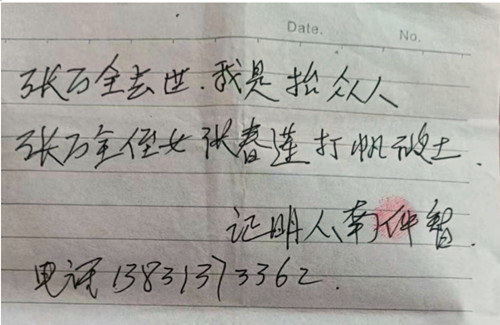 Date. No.
张万全去世.我是抬众人
张万全侄女张春莲打帆破土.
证明人(南)仲智.
电话13831373362.